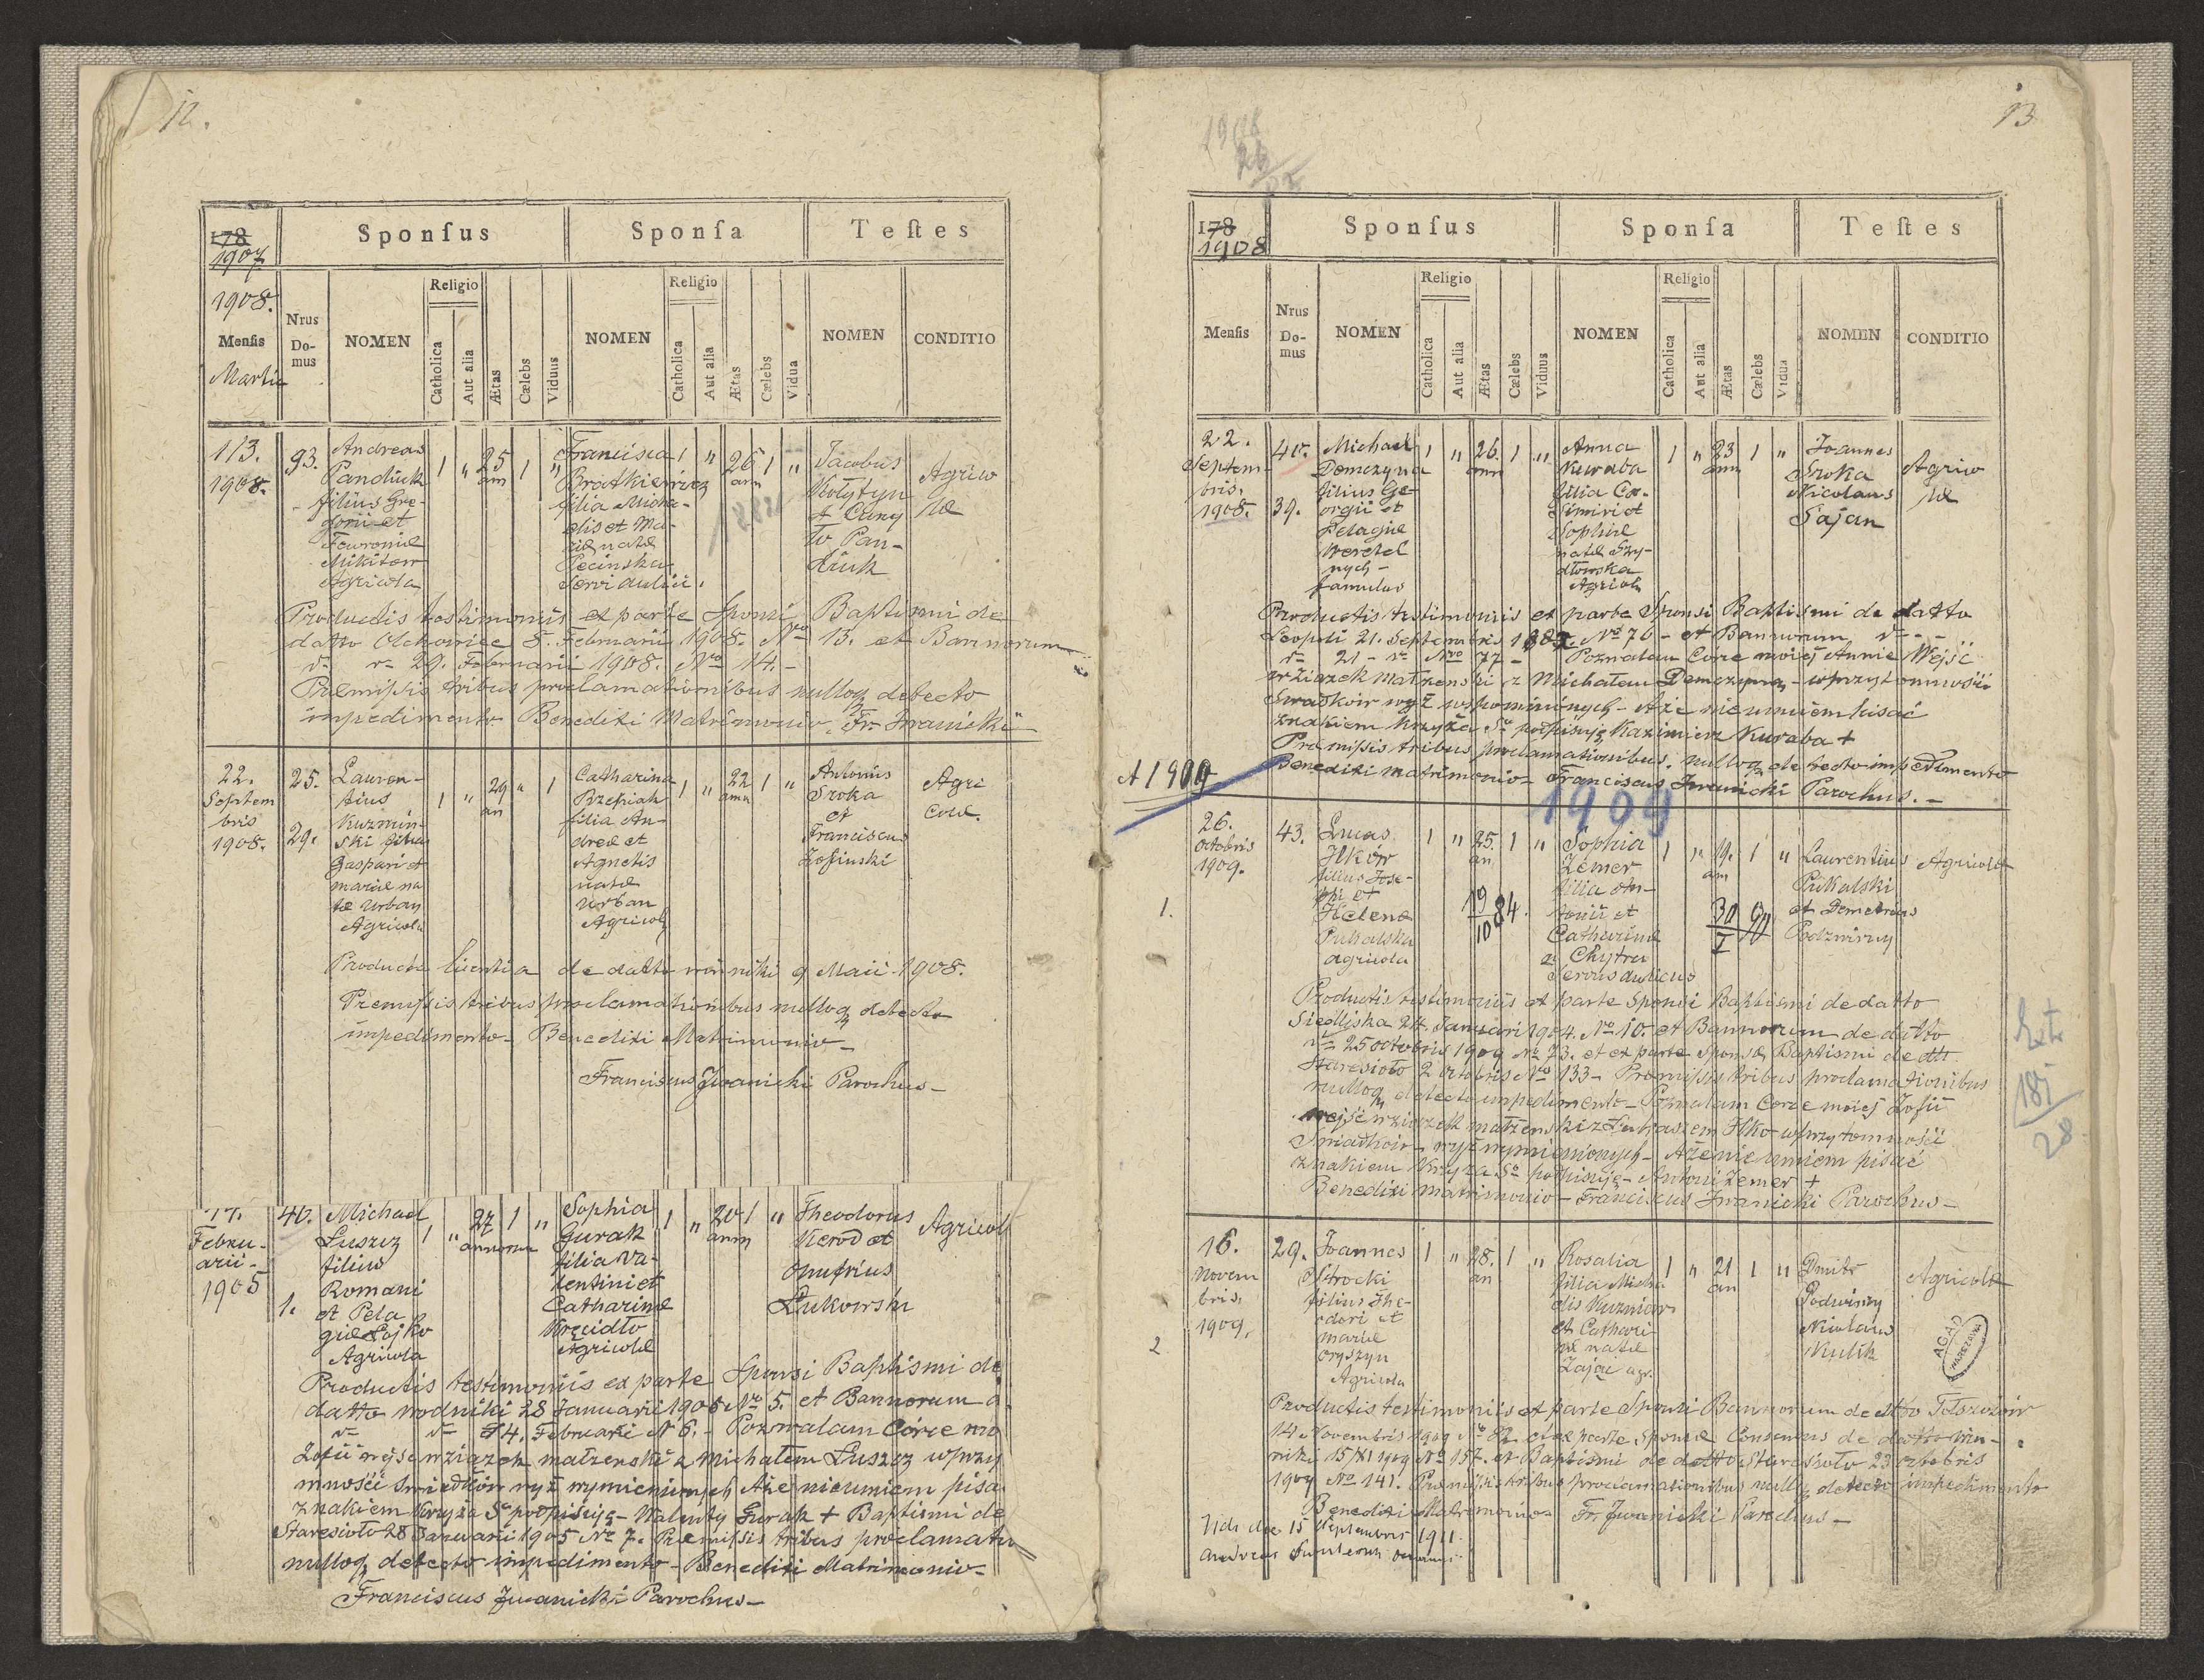 12.
178
1907
1908.
Sponſus
Sponſa
Teſtes
Menſis
Martii
Nrus
Do-
mus
NOMEN
Religio
Catholica
Aut alia
Ætas
Cælebs
Viduus
NOMEN
Religio
Catholica
Aut alia
Ætas
Cælebs
Vidua
NOMEN
CONDITIO
1/3.
1908.
93.
Andreas
Panduk
filius Gre-
gorii et
Fewronie
Mikitow
Agricola
1 " 25 1 "
ann
Francisca
Bratkiewicz
filia Micha-
elis et Ma-
riæ natæ
Pecinska
Servi aulici.
1 " 26 1 "
ann
Jacobus
Kołytyn
et
to Pan-
duk
Agrico
læ
Productis testimoniis ex parte Sponsi Baptismi de
datto Olchowiec 8. Februarii 1908. Nro 13. et Bannorum
29. Februarii 1908. Nro 14.-
Præmissis tribus proclamationibus nulloq detecto
impedimento Benedixi Matrimonio. Fr. Iwanicki
22.
Septem
bris
1908.
25.
29.
Lauren-
tius
Kuzmin-
ski filius
Gaspari et
mariæ na
tæ Urban
Agricola
1 " 29 " 1
an
Catharina
Brzepiak
filia An-
dreæ et
Agnetis
natæ
Urban
Agricolæ
1 " 22 1 "
ann
Antonius
Sroka
et
Franciscus
Zofinski
Agri
colæ.
Producta licentia de datto winniki 9 Maii 1908.
Præmissis tribus proclamationibus nulloq detecto
impedimento- Benedixi Matrimonio-
Franciscus Iwanicki Parochus-
Febru-
arii-
1905
40.
1.
Michael
Łuszcz
filius
Romani
et Pela
giæ Łojko
Agricola
1 " 27 1 "
annorum
Sophia
Gurak
filia Va-
lentini et
Catharinæ
Kręcidło
Agricolæ
1 " 20 1 "
ann
Theodorus
Kerod et
Onufrius
Łukowski
Agricol
Productis testimoniis ex parte Sponsi Baptismi de
datto wodniki 28 Januarii 1905 Nro 5. et Bannorum d
14. Februarii N 6. - Pozwalam Córce mo
Zofii wejsc wzwiązek małzenski z Michałem Łuszcz wprzy
mności Swiadków wyż wymieninych Aże nieumiem pisa
znakiem Kryża Sę podpisuję- Walenty Gurak + Baptismi de
Staresioło 28 Januarii 1905 Nro 7. Præmissis tribus proclamatio
nulloq detecto impedimento- Benedixi Matrimonio-
Franciscus Iwanicki Parochus-
13
178
1908
Sponſus
Sponſa
Teſtes
Menſis
Nrus
Do-
mus
NOMEN
Religio
Catholica
Aut alia
Ætas
Cælebs
Viduus
NOMEN
Religio
Catholica
Aut alia
Ætas
Cælebs
Vidua
NOMEN
CONDITIO
22.
Septem-
bris.
1908.
40.
39.
Michael
Demczyna
filius Ge-
orgii et
Pelagiæ
Werchol
nych-
famulus
1 " 26. 1 "
ann
Anna
Kuraba
filia Ca-
simiri et
Sophiæ
natæ Szy-
dłowska
Agricola
1 " 23 1 "
ann
Joannes
Sroka
Nicolaus
Sajan
Agrico
læ
Productis testimoniis ex parte Sponsi Baptismi de datto
Leopoli 21. Septembris 1887. No 76 - et Bannorum
21 - Nro 77 - Pozwalam Córce mojej Annie Wejść
wzwiązek małzenski z Michałem Demczyną - wprzytomności
Swiadków wyż wspomninych - Aże nieumiem pisać
znakiem krzyża Sę podpisuję Kazimierz Kuraba +
Præmissis tribus proclamationibus. nulloq detecto impedimento
Benedixi matrimonio- Franciscus Iwanicki Parochus.-
A 1909
1909
26.
octobris
1909.
1.
43.
Lucas
Ilków
filius Jose-
phi et
Helenæ
Pukalska
agricola
1 " 25. 1 "
an
19
10 84.
Sophia
Zemer
filia An-
tonii et
Catharinæ
a Chytra
Servus aulicus
1 " 19. 1 "
ann
30
I 90
Laurentius
Pukalski
et Demetrius
Podzwirny
Agricolæ
Productis testimoniis ex parte Sponsi Baptismi de datto
Siedliska 24. Januari 1904. No 10. et Bannorum de datto
25 octobris 1909 No 73. et ex parte Sponsæ Baptismi de dtt.
Staresioło 2 octobris Nro 133- Præmissis tribus proclamationibus
nulloq detecto impedimento- Pozwalam Corce mojej Zofii
wejść wzwiązek małzenski z Łukaszem Ilko- wprzytomności
Swiadków- wyż wymienionych- Aże nieumiem pisać
znakiem Kryza Sę podpisuję- Antoni Zemer +
Benedixi matrimonio- Franciscus Iwanicki Parochus-
185
28
16.
Novem
bris.
1909.
2
29.
Joannes
Ostrocki
filius The-
odori et
mariæ
Oryszyn
Agricola
1 " 28. 1 "
an
Rosalia
filia Micha
elis Kuzniar
et Cathari
næ natæ
Zając agr.
1 " 21 1 "
an
Dmitr
Podwirny
Nicolaus
Kulik
Agricolæ
AGAD
WARSZAWA
Productis testimoniis ex parte Sponsi Bannorum de dtto Tołszczów
14 Novembris 1909 No 82 et ex parte Sponsæ Consensus de datto win-
niki 15/XI 1909 No 157. et Baptismi de datto Staresioło 23 octobris
1909 No 141. Præmissis tribus proclamationibus nulloq detecto impedimento
Benedixi Matrimonio- Fr. Iwanicki Parochus-
Vidi die 15 Septembris 1911.